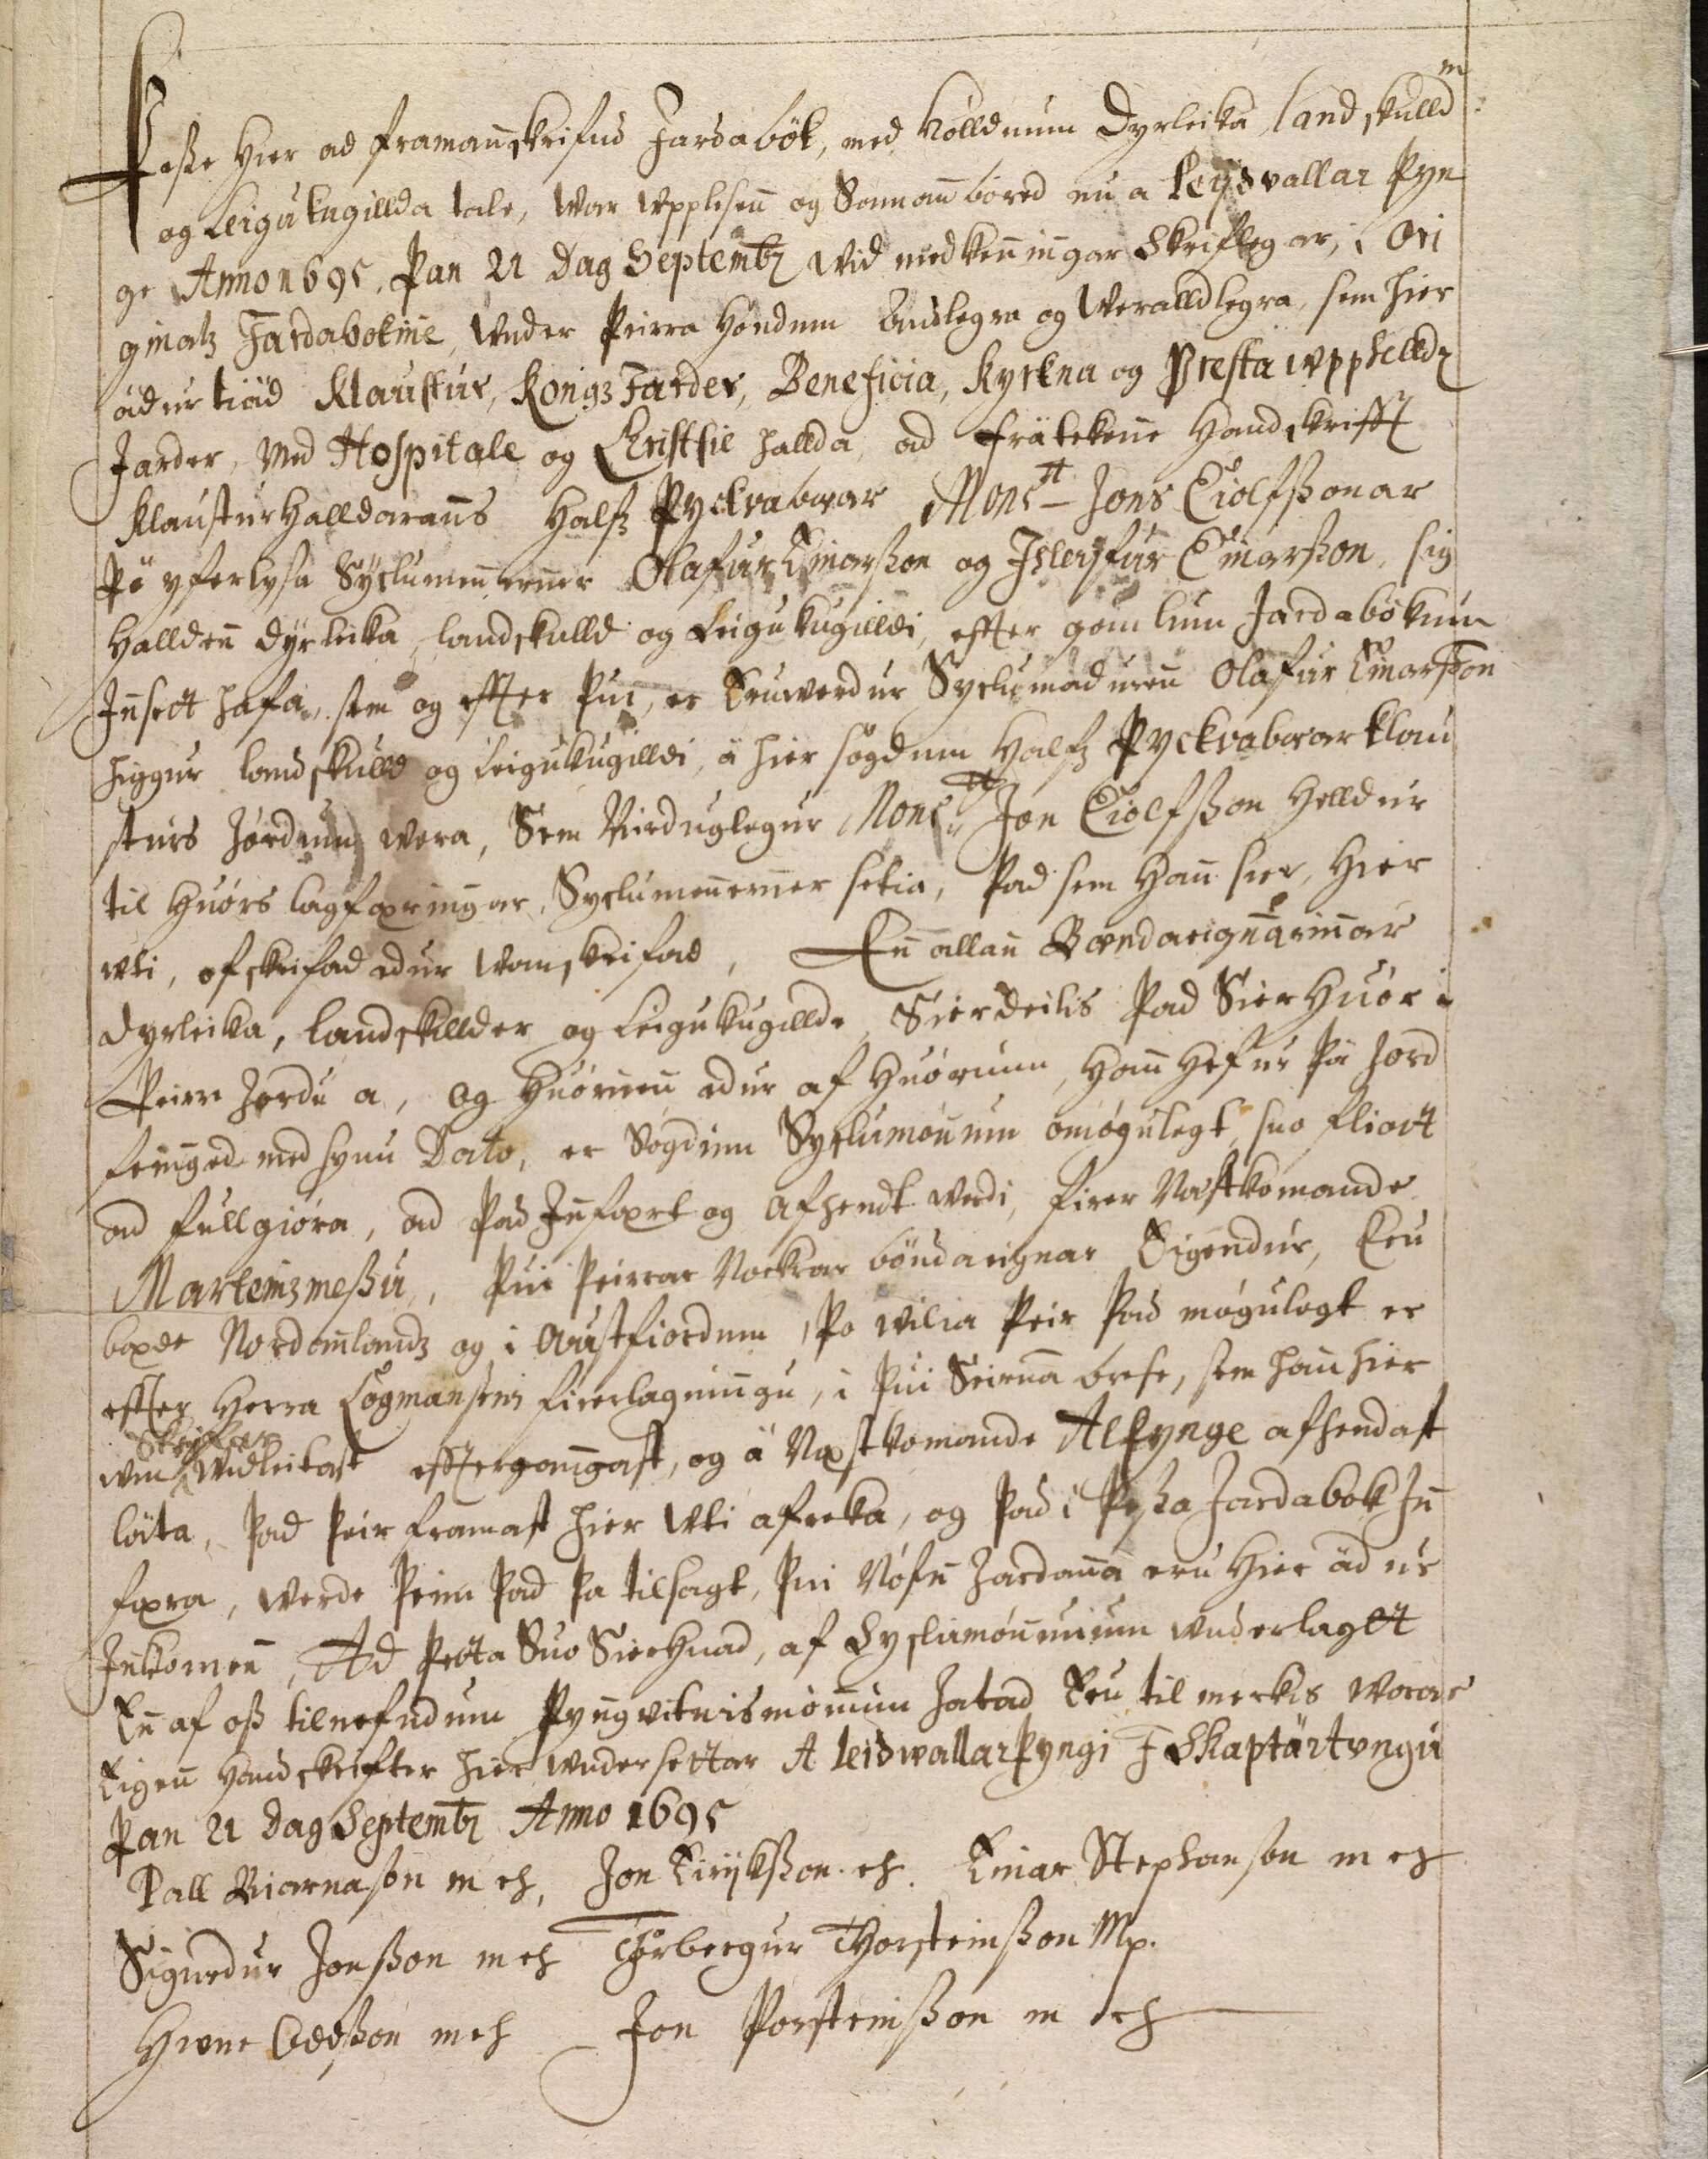 Þesse Hier ad framannskrifud Jardabök, med holldnum Dyrleika, landskulldm
og Leigukugillda tale, war upplesenn og Samannbored nu a Leijdvallar Þyn
ge Anno 1695. Þan 21 Dag Septembr wid medkenningar Skriflegar, i Ori
ginalz Jardabokine, under Þeirra Höndum Andlegra og Veralldlegra, sem hier
ädur tiäd Klaustur, Kongs Jarder, Beneficia, Kyrkna og Presta upphelldz
Jarder, Med Hospitale og Christfie hallda, ad fräteknne Handskrifft
Klausturhalldarans Halfz Þyckvabæar Monsr Jons Eiolfssonar
Þö yferlysa Syslumennerner Olafur Einarsson og Jsleifur Einarsson, sig
Halldenn dyrleika, landskulld og Leigukugilldi, effter gömlum Jardabökum
Jnnsett hafa, sem og effter Þui, er Eruverdur Syslumadurenn Olafur Einarsson
higgur landskulld og leigukugilldi, ä hier sögdum Halfz Þyckvabæar Klau
sturs Jördum vera, Sem Virduglegur Monsr Jon Eiolfsson Helldur
til Huörs lagfæringar, Syslumennerner setia, Þad sem Hann sier, Hier
uti, ofskrifad edur vanskrifad, Enn allann Bændaeignarinnar
dyrleika, landskullder og Leigukugillde, Sierdeilis Þad Sier Huör i
Þeirre Jördu a, og Huörnenn edur af Huörium, Hann Hefur Þä Jörd
feinged med synu Dato, er Sögdum Syslumönnum omögulegt suo fliott
ad fullgiöra, ad Þad Jnnfært og Afhendt verdi, firer Næstkomande
Marteinsmessu, Þui Þeirrar Nockrar böndaeignar Eigendur, Eru
bæde Nordannlandz og i Austfiordum, Þo vilia Þeir Þad mögulegt er
effter Herra Lögmansens firerlagningu, i Þui Seirna brefe, sem hann hier
um Skrifar vidleitast effterganngast, og ä Næstkomande Alþynge afhendast
läta, Þad Þeir framast hier uti afreka, og Þad i Þessa Jardabok Jnn
færa, verde Þeim Þad Þa tilsagt, Þui Nöfn Jardanna eru Hier ädur
Jnnkomenn, Ad Þetta Suo Sierhuad, af Syslumönnunum underlagtt
Enn af oss tilnefndum Þyngvitnismönnum Jatad Eru til merkis vorar
Eigenn Handskrifter hier undersettar A leidvallarþyngi J Skaptärtungu
Þan 21 Dag Septembr Anno 1695
Pall Biarnason m eh, Jon Eirijksson eh. Einar Stephanson m eh
Sigurdur Jonsson m eh Thorbergur Thorsteinsson Mp.
Oddsson meh Jon Þorsteinsson m eh